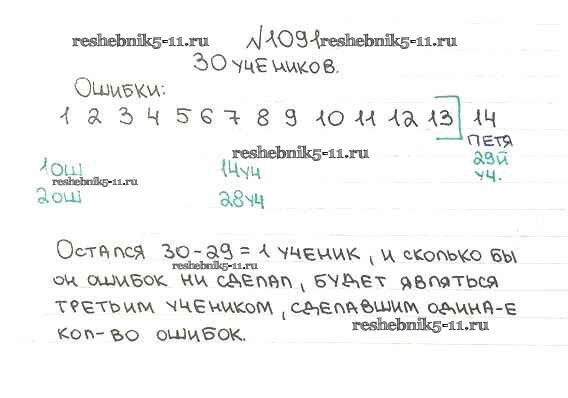 reshebnik5-11.ru №1091 reshebnik5-11.ru
30 УЧЕНИКОВ.
ОШИБКИ:
1 2 3 4 5 6 7 8 9 10 11 12 13] 14
ПЕТЯ
reshebnik5-11.ru
29Й
1ОШ 14УЧ УЧ.
reshebnik5-11.ru
2ОШ 28УЧ
ОСТАЛСЯ 30-29=1 УЧЕНИК, И СКОЛЬКО БЫ
reshebnik5-11.ru
ОН ОШИБОК НИ СДЕЛАЛ, БУДЕТ ЯВЛЯТЬСЯ
ТРЕТЬИМ УЧЕНИКОМ, СДЕЛАВШИМ ОДИНА-Е
reshebnik5-11.ru
КОЛ-ВО ОШИБОК.